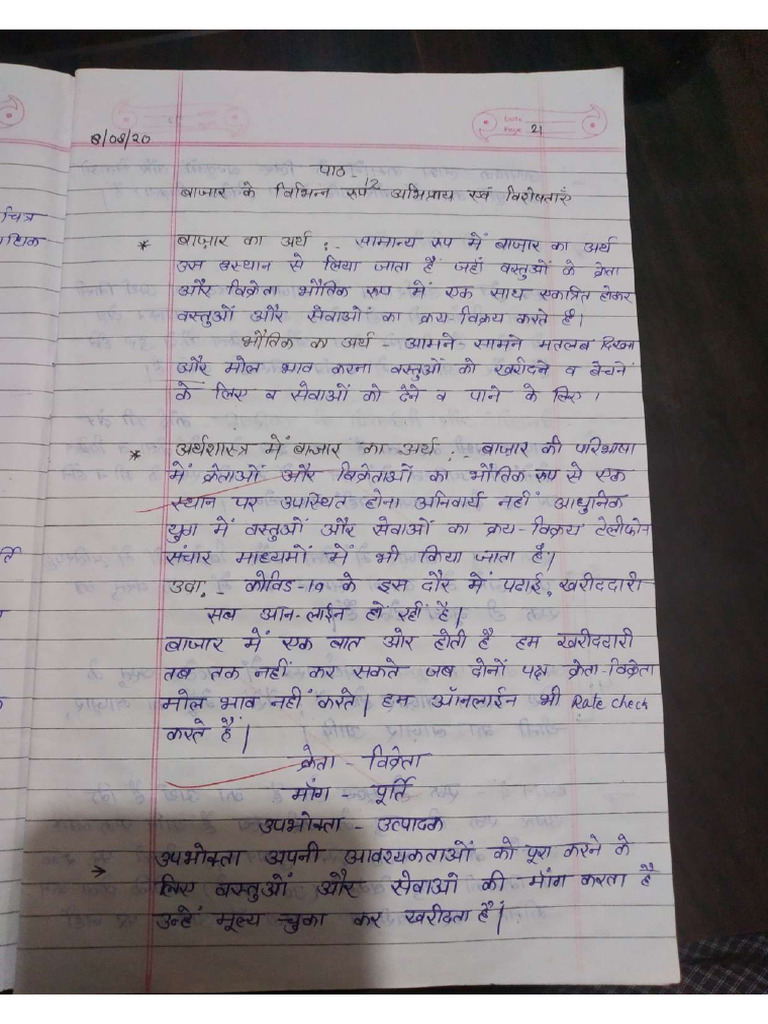 Date
Page 21
8/08/20
पाठ - 12
बाजार के विभिन्न रूप अभिप्राय एवं विशेषताएँ
* बाज़ार का अर्थ :- सामान्य रूप में बाज़ार का अर्थ
उस स्थान से लिया जाता हैं जहाँ वस्तुओं के क्रेता
और विक्रेता भौतिक रूप में एक साथ एकत्रित होकर
वस्तुओं और सेवाओं का क्रय-विक्रय करते हैं।
भौतिक का अर्थ - आमने-सामने मतलब दिखना
और मोल भाव करना वस्तुओं को खरीदने व बेचने
के लिए व सेवाओं को देने व पाने के लिए।
* अर्थशास्त्र में बाजार का अर्थ :- बाज़ार की परिभाषा
में क्रेताओं और विक्रेताओं का भौतिक रूप से एक
स्थान पर उपस्थित होना अनिवार्य नहीं आधुनिक
युग में वस्तुओं और सेवाओं का क्रय-विक्रय टेलीफोन
संचार माध्यमों में भी किया जाता है।
उदा. - कोविड-19 के इस दौर में पढाई, खरीददारी
सब आन-लाईन हो रहीं है।
बाजार में एक बात ओर होती है हम खरीददारी
तब तक नहीं कर सकते जब दोनों पक्ष क्रेता-विक्रेता
मोल भाव नहीं करते। हम ऑनलाईन भी Rate check
करते हैं।
क्रेता - विक्रेता
माँग - पूर्ति
उपभोक्ता - उत्पादक
→ उपभोक्ता अपनी आवश्यकताओं को पूरा करने के
लिए वस्तुओं और सेवाओं की माँग करता है
उन्हें मूल्य चुका कर खरीदता है।
चित्र